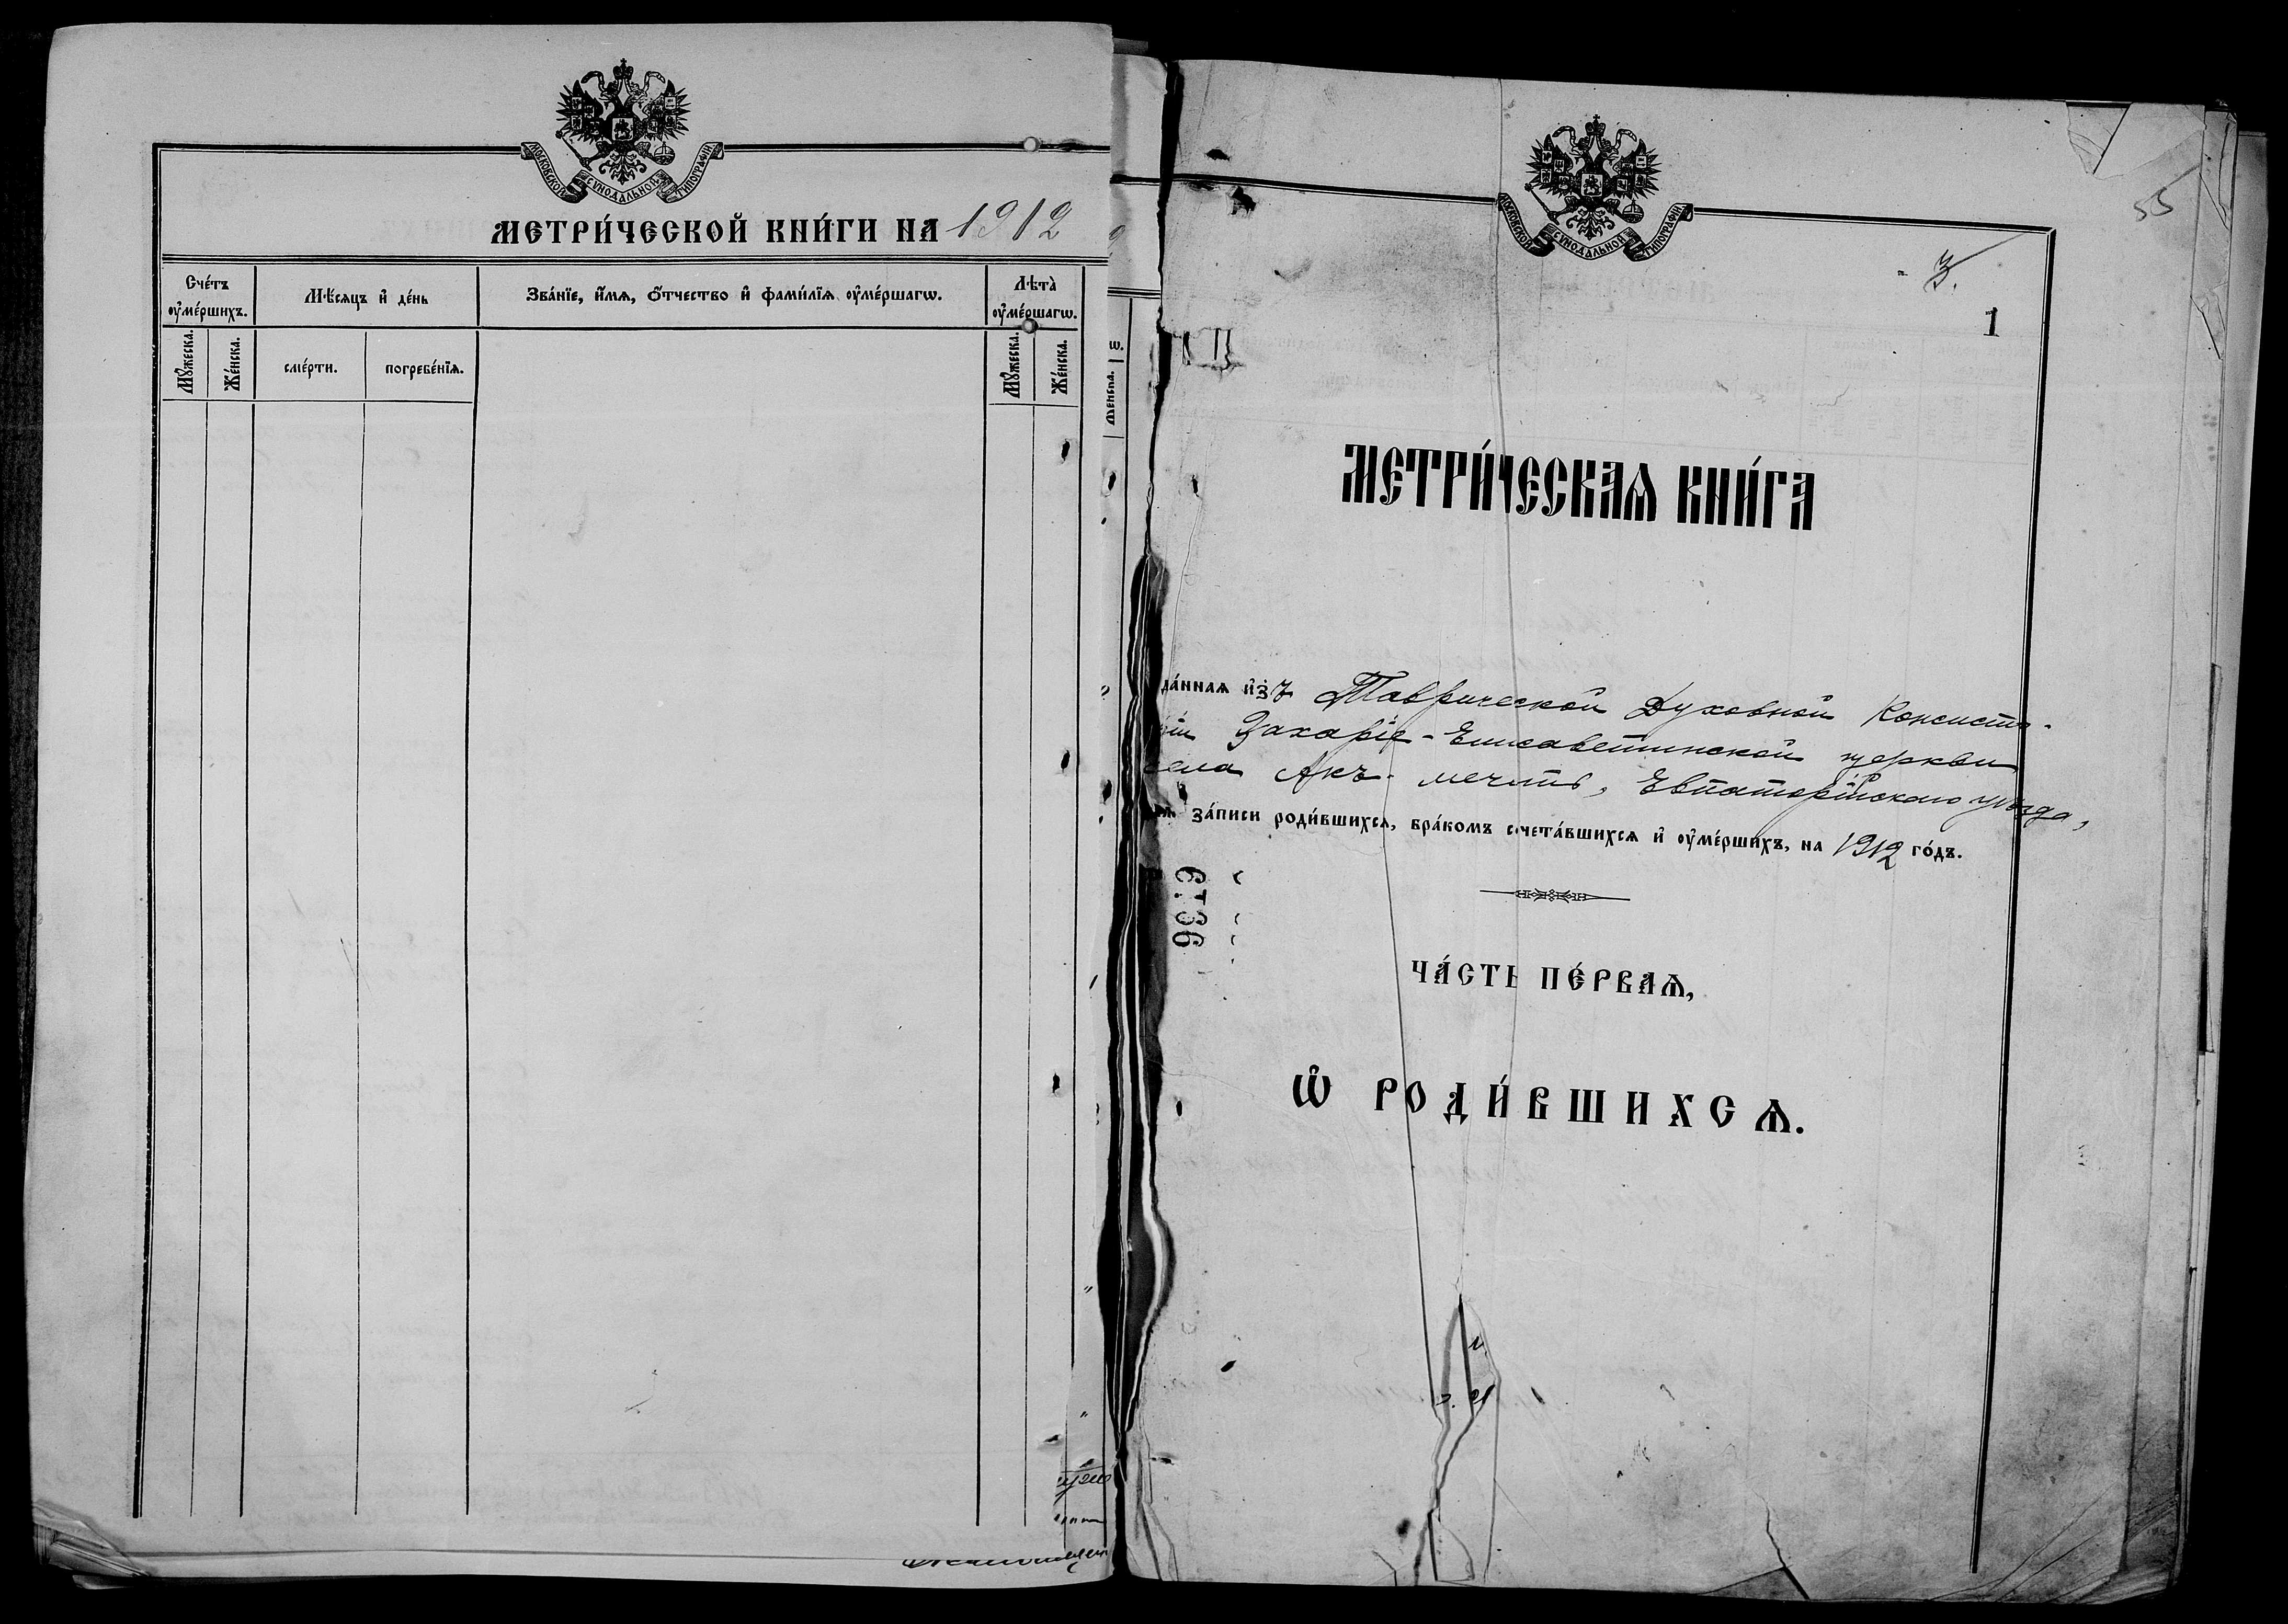 МОСКОВСКОЙ СѴНОДАЛЬНОЙ ТИПОГРАФІИ
МЕТРИ́ЧЕСКОЙ КНИ́ГИ НА 1912
Сче́тъ оу҆ме́ршихъ.
Мѣ́сяцъ и҆ де́нь
Зва́нїе, и҆́мѧ, ѻ҆́тчество и҆ фами́лїѧ оу҆ме́ршагѡ.
Лѣ́та оу҆ме́ршагѡ.
Мꙋ́жеска.
Же́нска.
сме́рти.
погребе́нїѧ.
Мꙋ́жеска.
Же́нска.
МОСКОВСКОЙ СѴНОДАЛЬНОЙ ТИПОГРАФІИ
55
3.
1
МЕТРИ́ЧЕСКАѦ КНИ́ГА
да́ннаѧ и҆зъ Таврической Духовной Консисто-
рiи Захаріе-Елисаветинской церкви
села Акъ-мечеть, Евпаторійскаго уѣзда,
за́писи роди́вшихсѧ, бра́комъ сочета́вшихсѧ и҆ оу҆ме́ршихъ, на 1912 го́дъ.
ЧА́СТЬ ПЕ́РВАѦ,
Ѡ҆ РОДИ́ВШИХСѦ.